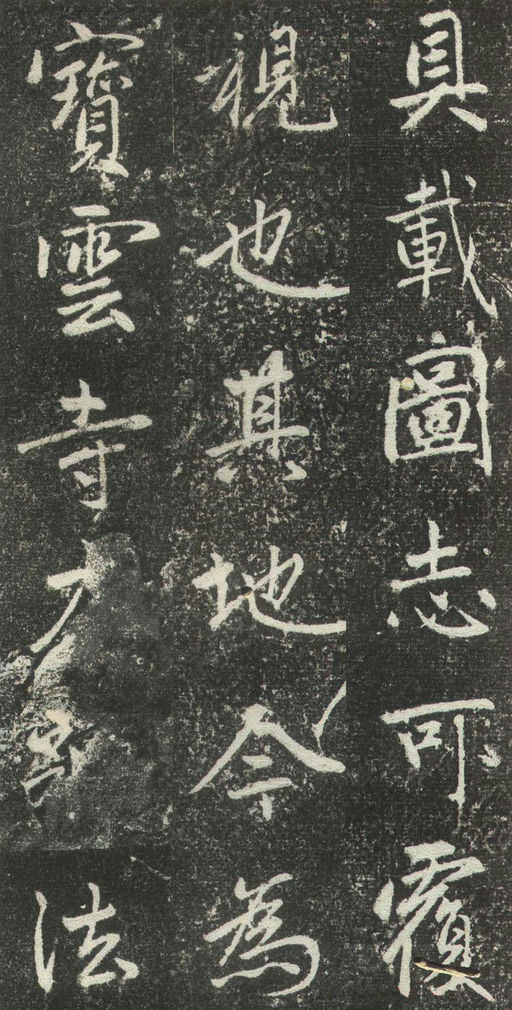 具載圖志可覆
視也其地今為
寶雲寺大法